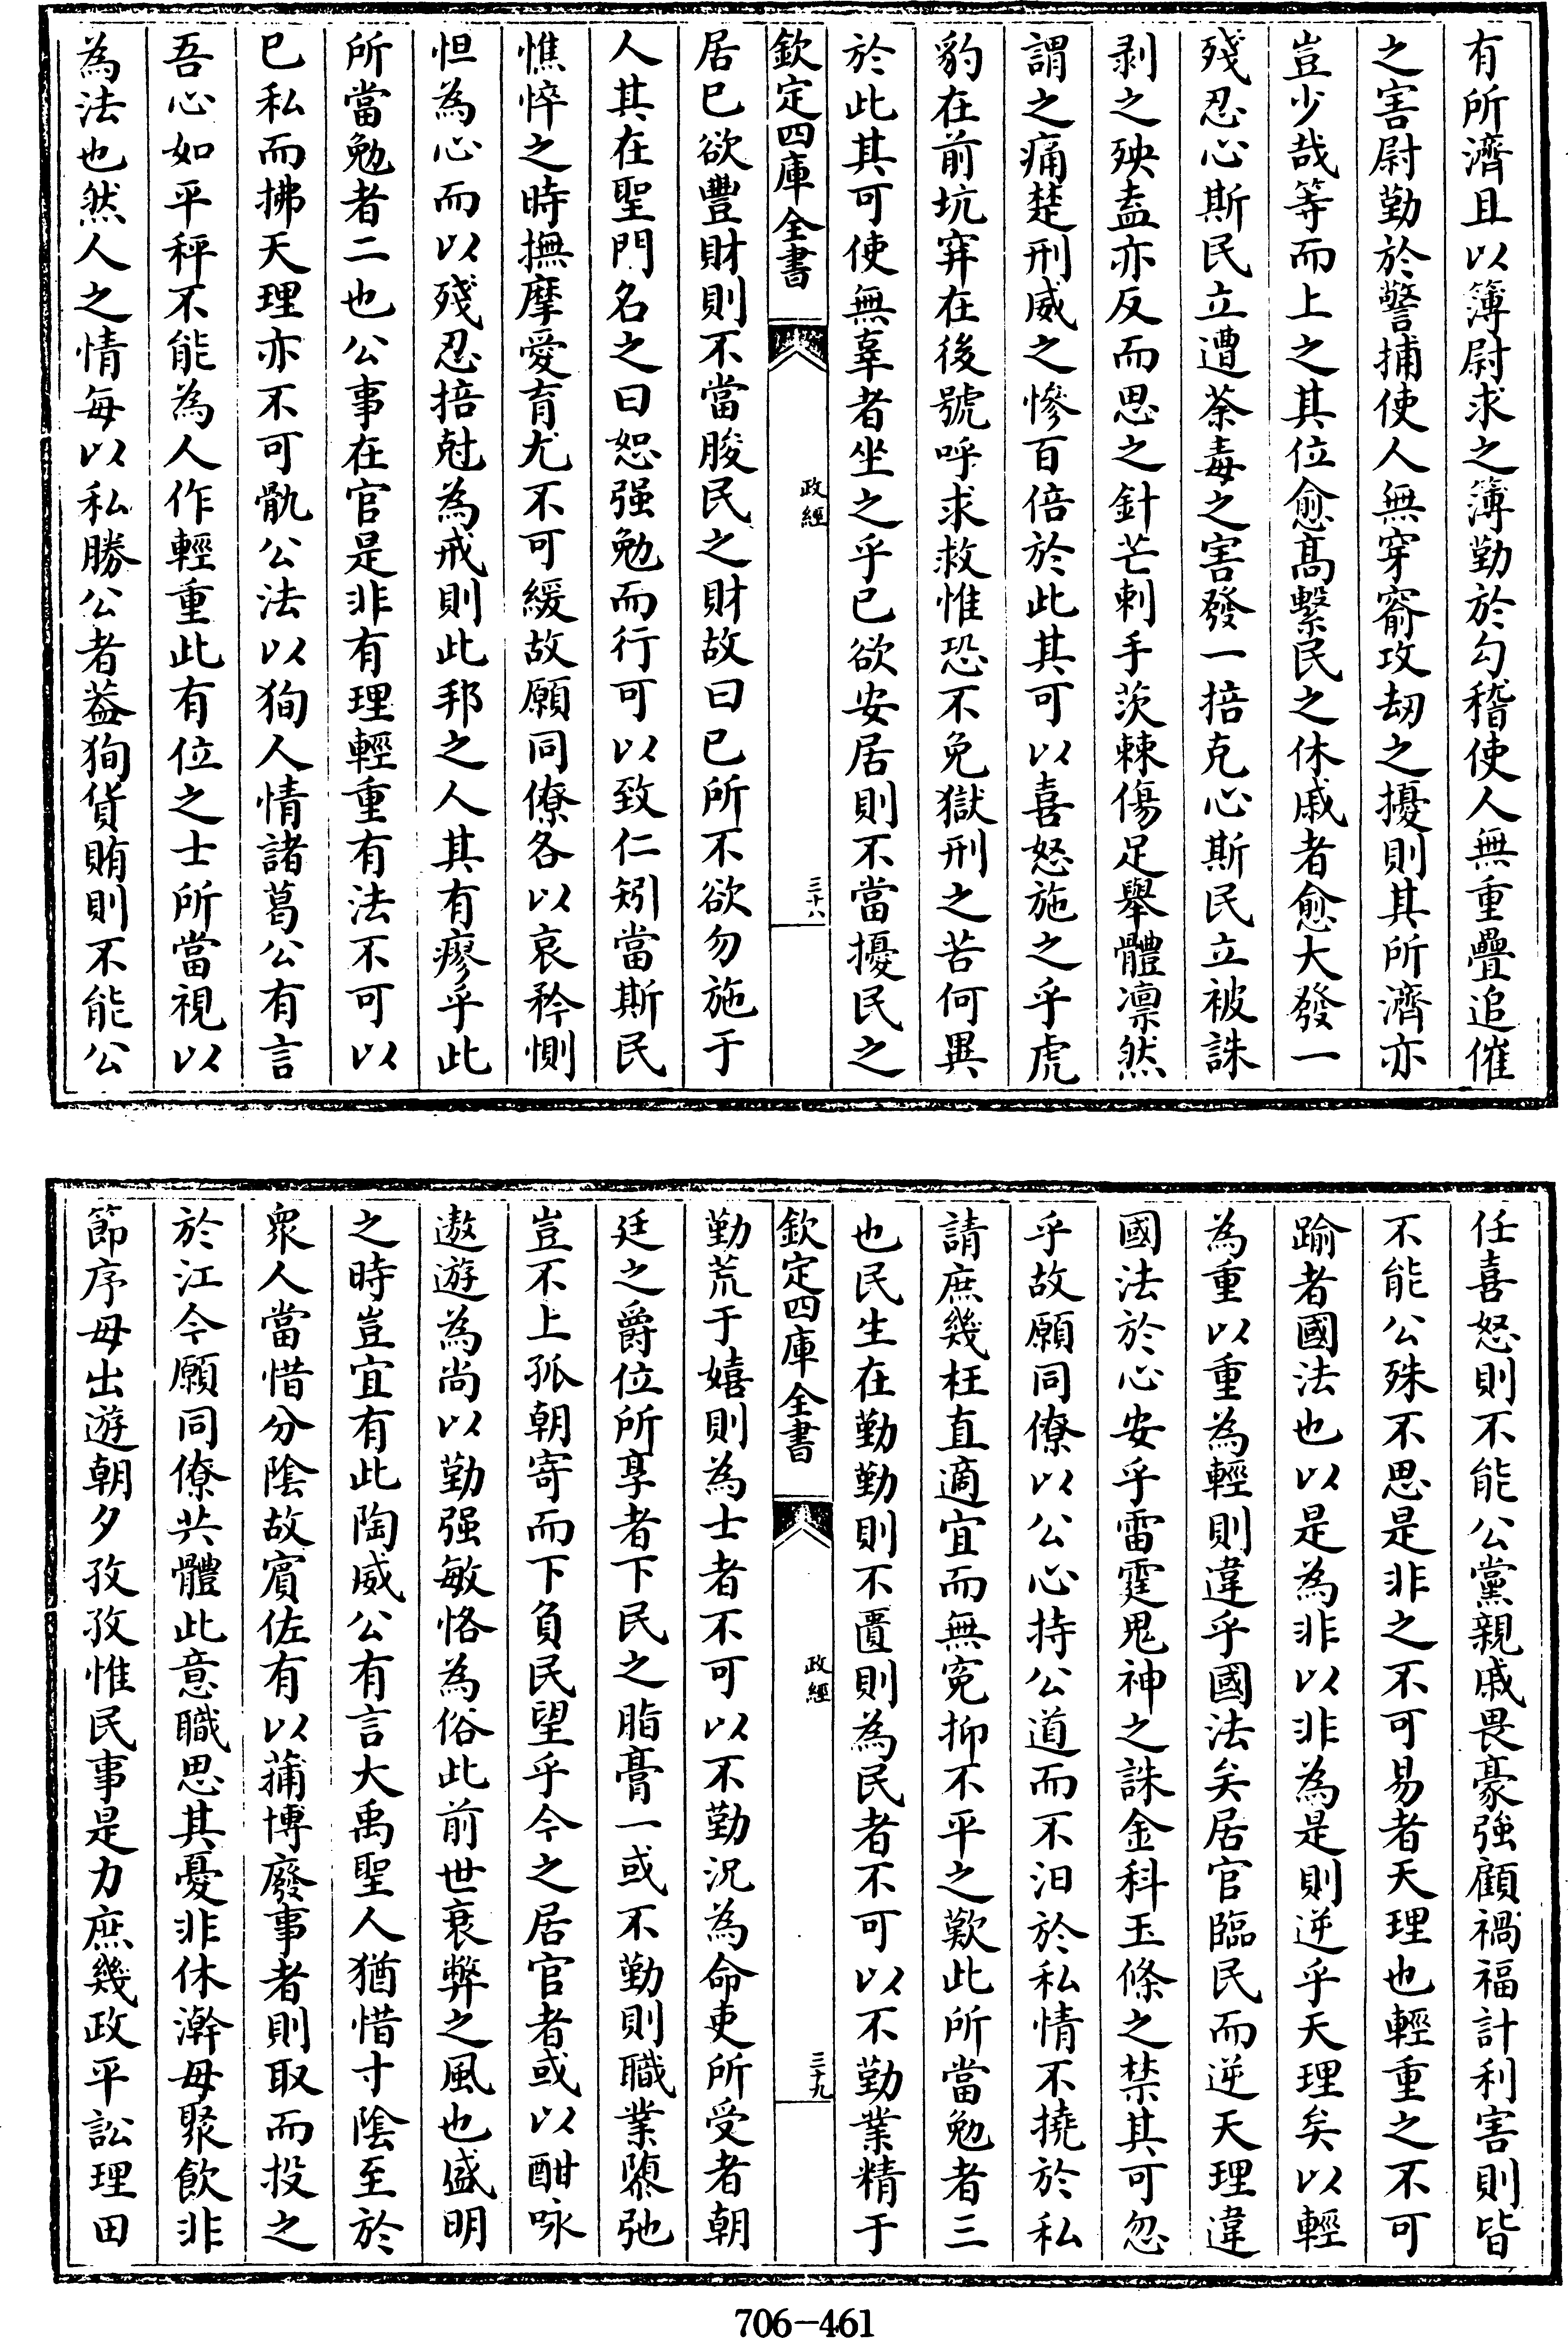 有所濟且以簿尉求之簿勤於勾稽使人無重疊追催
之害尉勤於警捕使人無穿窬攻刼之擾則其所濟亦
豈少哉等而上之其位愈髙繫民之休戚者愈大發一
殘忍心斯民立遭荼毒之害發一掊克心斯民立被誅
剥之殃盍亦反而思之針芒刺手茨棘傷足舉體凛然
謂之痛楚刑威之慘百倍於此其可以喜怒施之乎虎
豹在前坑穽在後號呼求救惟恐不免獄刑之苦何異
於此其可使無辜者坐之乎已欲安居則不當擾民之
欽定四庫全書
政經
三十八
居已欲豐財則不當朘民之財故曰已所不欲勿施于
人其在聖門名之曰恕强勉而行可以致仁矧當斯民
憔悴之時撫摩愛育尤不可緩故願同僚各以哀矜惻
怛為心而以殘忍掊尅為戒則此邦之人其有瘳乎此
所當勉者二也公事在官是非有理輕重有法不可以
已私而拂天理亦不可骫公法以狥人情諸葛公有言
吾心如平秤不能為人作輕重此有位之士所當視以
為法也然人之情每以私勝公者葢狥貨賄則不能公
任喜怒則不能公黨親戚畏豪強顧禍福計利害則皆
不能公殊不思是非之不可易者天理也輕重之不可
踰者國法也以是為非以非為是則逆乎天理矣以輕
為重以重為輕則違乎國法矣居官臨民而逆天理違
國法於心安乎雷霆鬼神之誅金科玉條之禁其可忽
乎故願同僚以公心持公道而不汨於私情不撓於私
請庶幾枉直適宜而無寃抑不平之歎此所當勉者三
也民生在勤勤則不匱則為民者不可以不勤業精于
欽定四庫全書
政經
三十九
勤荒于嬉則為士者不可以不勤況為命吏所受者朝
廷之爵位所享者下民之脂膏一或不勤則職業隳弛
豈不上孤朝寄而下負民望乎今之居官者或以酣咏
遨遊為尚以勤强敏恪為俗此前世衰弊之風也盛明
之時豈宜有此陶威公有言大禹聖人猶惜寸陰至於
衆人當惜分陰故賔佐有以蒱博廢事者則取而投之
於江今願同僚共體此意職思其憂非休澣毋聚飲非
節序毋出遊朝夕孜孜惟民事是力庶幾政平訟理田
706-461